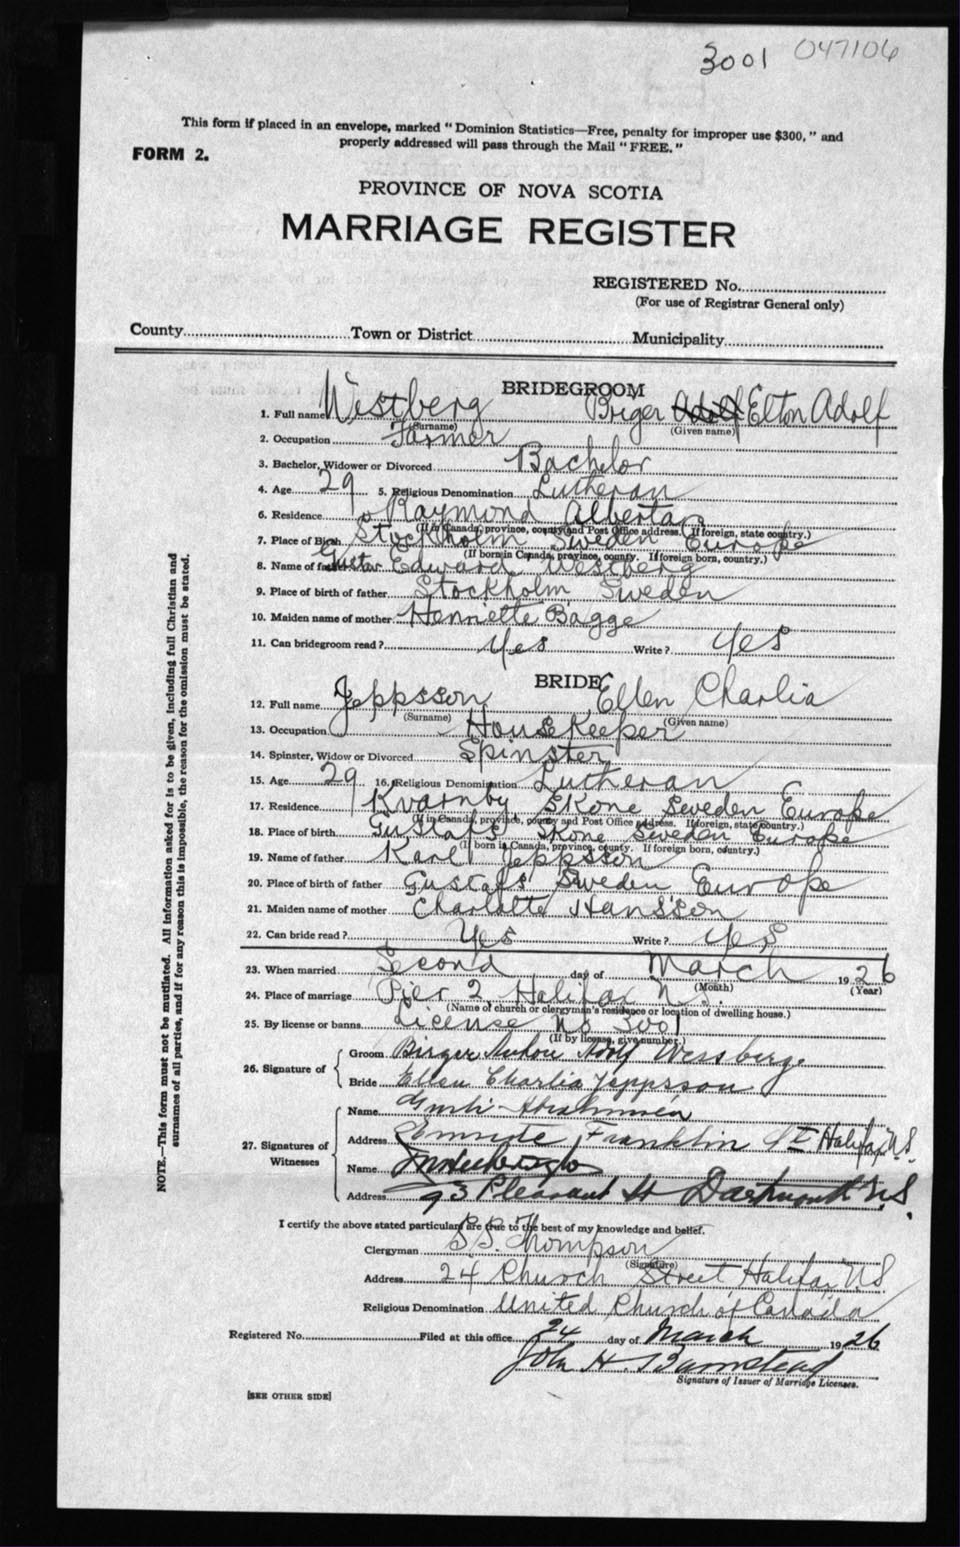 3001 047106
This form if placed in an envelope, marked "Dominion Statistics—Free, penalty for improper use $300," and
properly addressed will pass through the Mail "FREE."
FORM 2.
PROVINCE OF NOVA SCOTIA
MARRIAGE REGISTER
REGISTERED No.
(For use of Registrar General only)
County Town or District Municipality
BRIDEGROOM
1. Full name Westberg Briger Adolf Elton Adolf
(Surname) (Given name)
2. Occupation Farmer
3. Bachelor, Widower or Divorced Bachelor
4. Age 29 5. Religious Denomination Lutheran
6. Residence Raymond Alberta
(If in Canada, province, county and Post Office address. If foreign, state country.)
7. Place of Birth Stockholm Sweden Europe
(If born in Canada, province, county. If foreign born, country.)
8. Name of father Gustav Edward Westberg
9. Place of birth of father Stockholm Sweden
10. Maiden name of mother Henriette Bagge
11. Can bridegroom read? Yes Write? Yes
BRIDE
12. Full name Jeppsson Ellen Charlia
(Surname) (Given name)
13. Occupation HouseKeeper
14. Spinster, Widow or Divorced Spinster
15. Age 29 16. Religious Denomination Lutheran
17. Residence Kvarnby Skone Sweden Europe
(If in Canada, province, county and Post Office address. If foreign, state country.)
18. Place of birth Gustafs Skone Sweden Europe
(If born in Canada, province, county. If foreign born, country.)
19. Name of father Karl Jeppsson
20. Place of birth of father Gustafs Sweden Europe
21. Maiden name of mother Charlotte Hansson
22. Can bride read? Yes Write? Yes
23. When married Second day of March 1926
(Month) (Year)
24. Place of marriage Pier 2 Halifax N.S.
(Name of church or clergyman's residence or location of dwelling house.)
25. By license or banns License No 3001
(If by license, give number.)
26. Signature of Groom Birger Adolf
Bride Ellen Charlia Jeppsson
27. Signatures of Witnesses
Name
Address Franklin St Halifax N.S.
Name
Address 93 Pleasant St Dartmouth N.S.
I certify the above stated particulars are true to the best of my knowledge and belief.
Clergyman S.S. Thompson
(Signature)
Address 24 Church Street Halifax N.S
Religious Denomination United Church of Canada
Registered No. Filed at this office 24 day of March 1926
John H Barnstead
Signature of Issuer of Marriage Licenses.
[SEE OTHER SIDE]
NOTE.—This form must not be mutilated. All information asked for is to be given, including full Christian and
surnames of all parties, and if for any reason this is impossible, the reason for the omission must be stated.